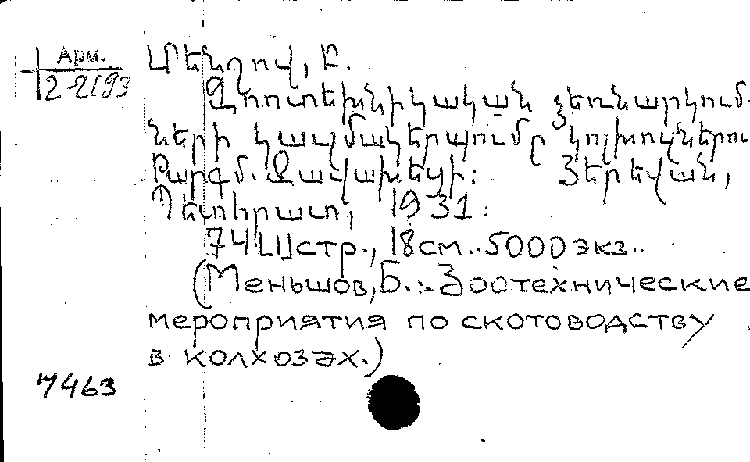 Арм.
2-2193
Մենշով, Բ.
Զոոտեխնիկական ձեռնարկում-
ների կազմակերպումը կոլխոզներու
Թարգմ. Ջավախեցի: Յերեվան,
Պետհրատ, 1931:
74 III стр., 18 см.. 5000 экз..
(Меньшов, Б. :- Зоотехнические
мероприятия по скотоводству
в колхозах.)
7463